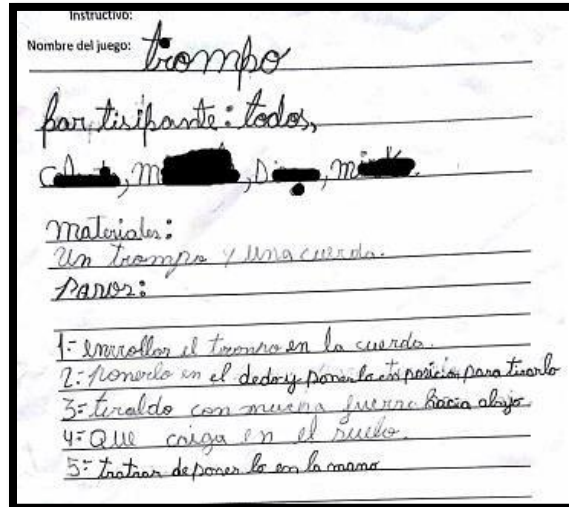 Instructivo:
Nombre del juego: trompo
partisipante: todos,
materiales:
Un trompo y una cuerda.
Pasos:
1= enrrollar el trompo en la cuerda.
2= ponerlo en el dedo y ponerlo en posición para tirarlo
3= tiraldo con mucha fuerza hacia abajo.
4= Que caiga en el suelo.
5= tratrar de poner lo en la mano